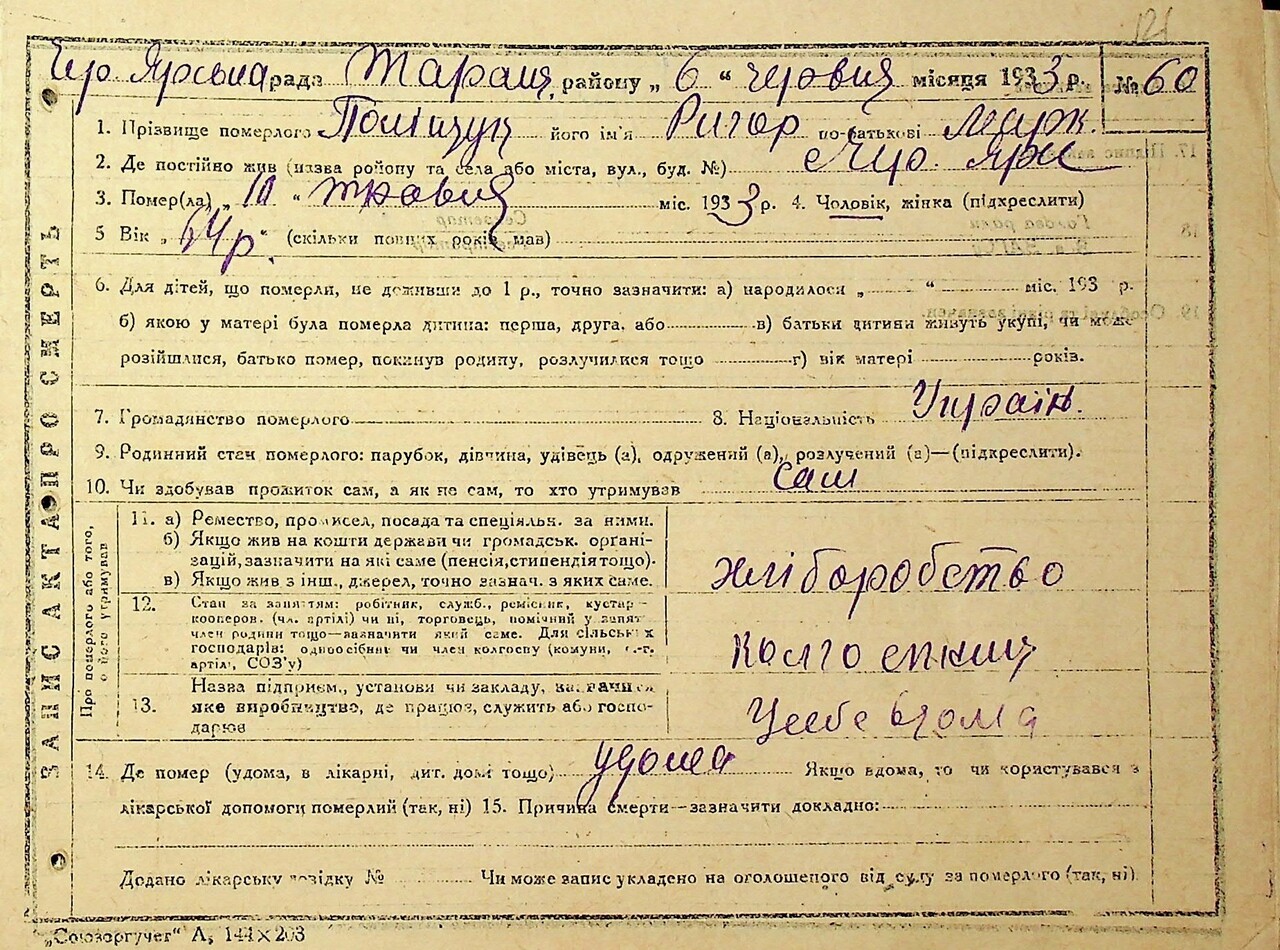 121
Чер. Ярська рада Таращ. району „ 6 “ червня місяця 1933 р. № 60
1. Прізвище померлого Поліщук його ім'я Ригор по-батькові Марк.
2. Де постійно жив (назва району та села або міста, вул., буд. №) Чер. Яри
3. Помер(ла) „ 10 “ травня міс. 1933 р. 4. Чоловік, жінка (підкреслити)
5 Вік „ 64 р. “ (скільки повних років мав)
6. Для дітей, що померли, не доживши до 1 р., точно зазначити: а) народилося „ “ міс. 193 р.
б) якою у матері була померла дитина: перша, друга, або в) батьки дитини живуть укупі, чи може
розійшлися, батько помер, покинув родину, розлучилися тощо г) вік матері років.
7. Громадянство померлого 8. Національність Україн.
9. Родинний стан померлого: парубок, дівчина, удівець (а), одружений (а), розлучений (а)—(підкреслити).
10. Чи здобував прожиток сам, а як не сам, то хто утримував сам
ЗАПИС АКТА ПРО СМЕРТЬ
Про померлого або того,
о його утримував
11. а) Ремество, промисел, посада та спеціяльн. за ними.
б) Якщо жив на кошти держави чи громадськ. орґані-
зацій, зазначити на які саме (пенсія, стипендія тощо).
в) Якщо жив з інш. джерел, точно зазнач. з яких саме.
хліборобство
12. Стан за заняттям: робітник, служб., ремісник, кустар—
кооперов. (чл. артілі) чи ні, торговець, помічний у занят.
член родини тощо—зазначити який саме. Для сільських
господарів: одноосібник чи член колгоспу (комуни, с.-г.
артілі, СОЗ'у)
Колгоспник
13. Назва підприєм., установи чи закладу, зазначивши
яке виробництво, де працює, служить або госпо-
дарює
У себе вдома
14. Де помер (удома, в лікарні, дит. домі тощо) удома Якщо вдома, то чи користувався з
лікарської допомоги померлий (так, ні) 15. Причина смерти—зазначити докладно:
Додано лікарську довідку № Чи може запис укладено на оголошеного від суду за померлого (так, ні)
„Союзоргучет“ А, 144×203